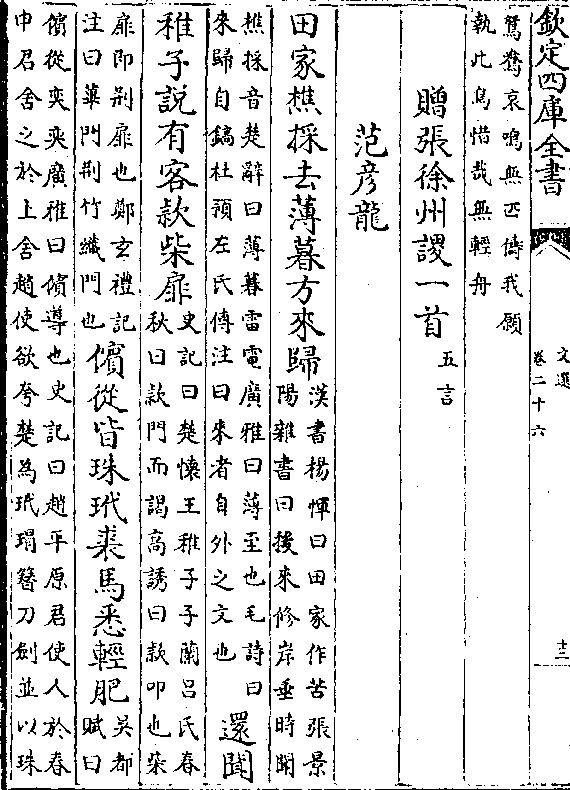 欽定四庫全書
文選
卷二十六
十三
鴛鴦哀鳴無匹儔我願
執此鳥惜哉無輕舟
贈張徐州謖一首五言
范彦龍
田家樵採去薄暮方來歸漢書楊惲曰田家作苦張景
陽雜書曰援來修岸垂時聞
樵採音楚辭曰薄暮雷電廣雅曰薄至也毛詩曰
來歸自鎬杜預左氏傳注曰來者自外之文也還聞
稚子說有客款柴扉史記曰楚懷王稚子子蘭吕氏春
秋曰款門而謁高誘曰款叩也柴
扉即荆扉也鄭玄禮記
注曰蓽門荆竹織門也儐從皆珠玳裘馬悉輕肥吳都
賦曰
儐從奕奕廣雅曰儐導也史記曰趙平原君使人於春
申君舍之於上舍趙使欲夸楚為玳瑁簪刀劍並以珠